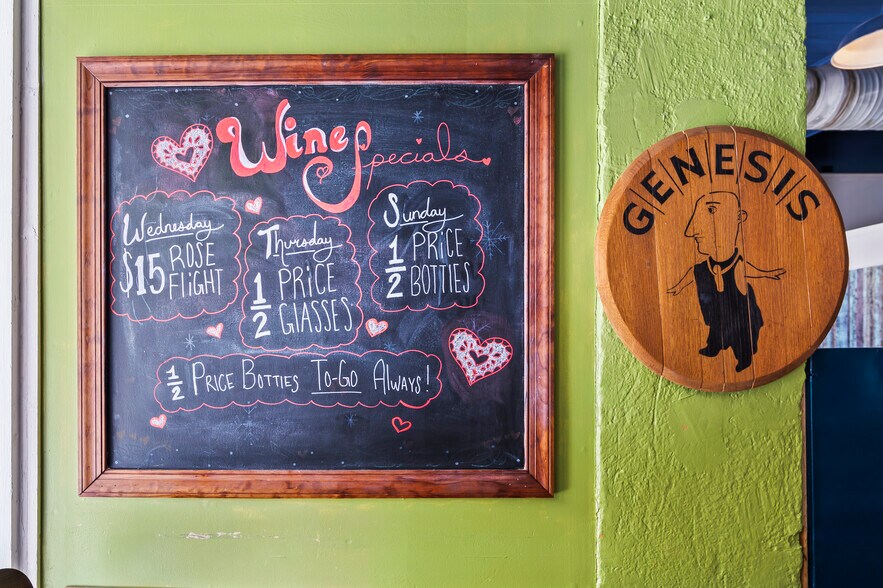 Wine Specials
Wednesday
$15 ROSE
FLIGHT
Thursday
1/2 PRICE
GLASSES
Sunday
1/2 PRICE
BOTTLES
1/2 PRICE BOTTIES TO-GO ALWAYS!
GENESIS